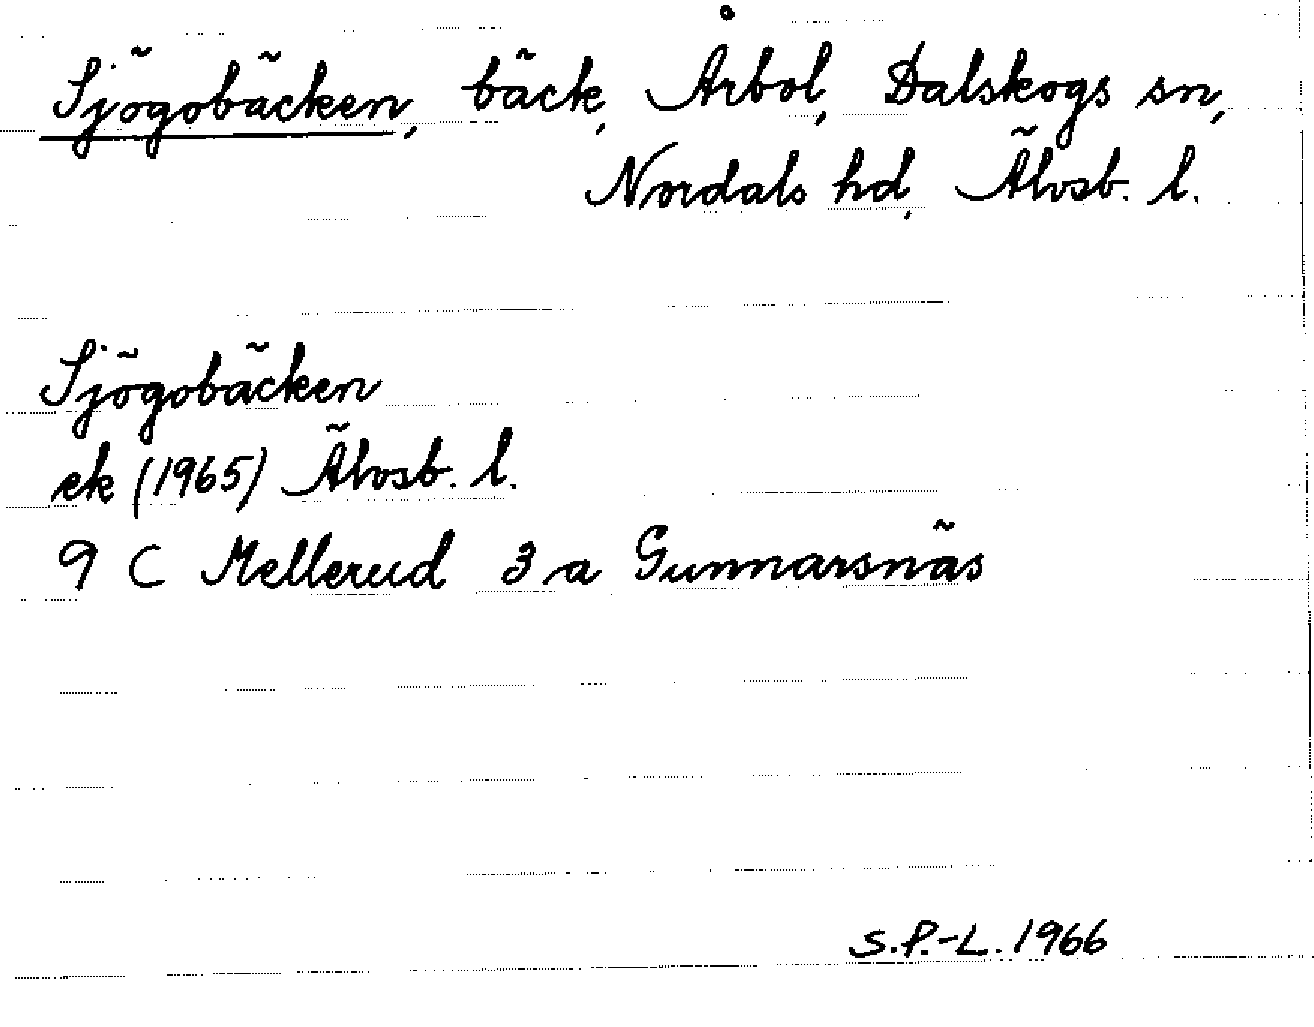 Sjögobäcken, bäck, Årbol, Dalskogs sn,
Nordals hd, Älvsb. l.
Sjögobäcken
ek (1965) Älvsb. l.
9 C Mellerud 3 a Gunnarsnäs
S.P.-L. 1966